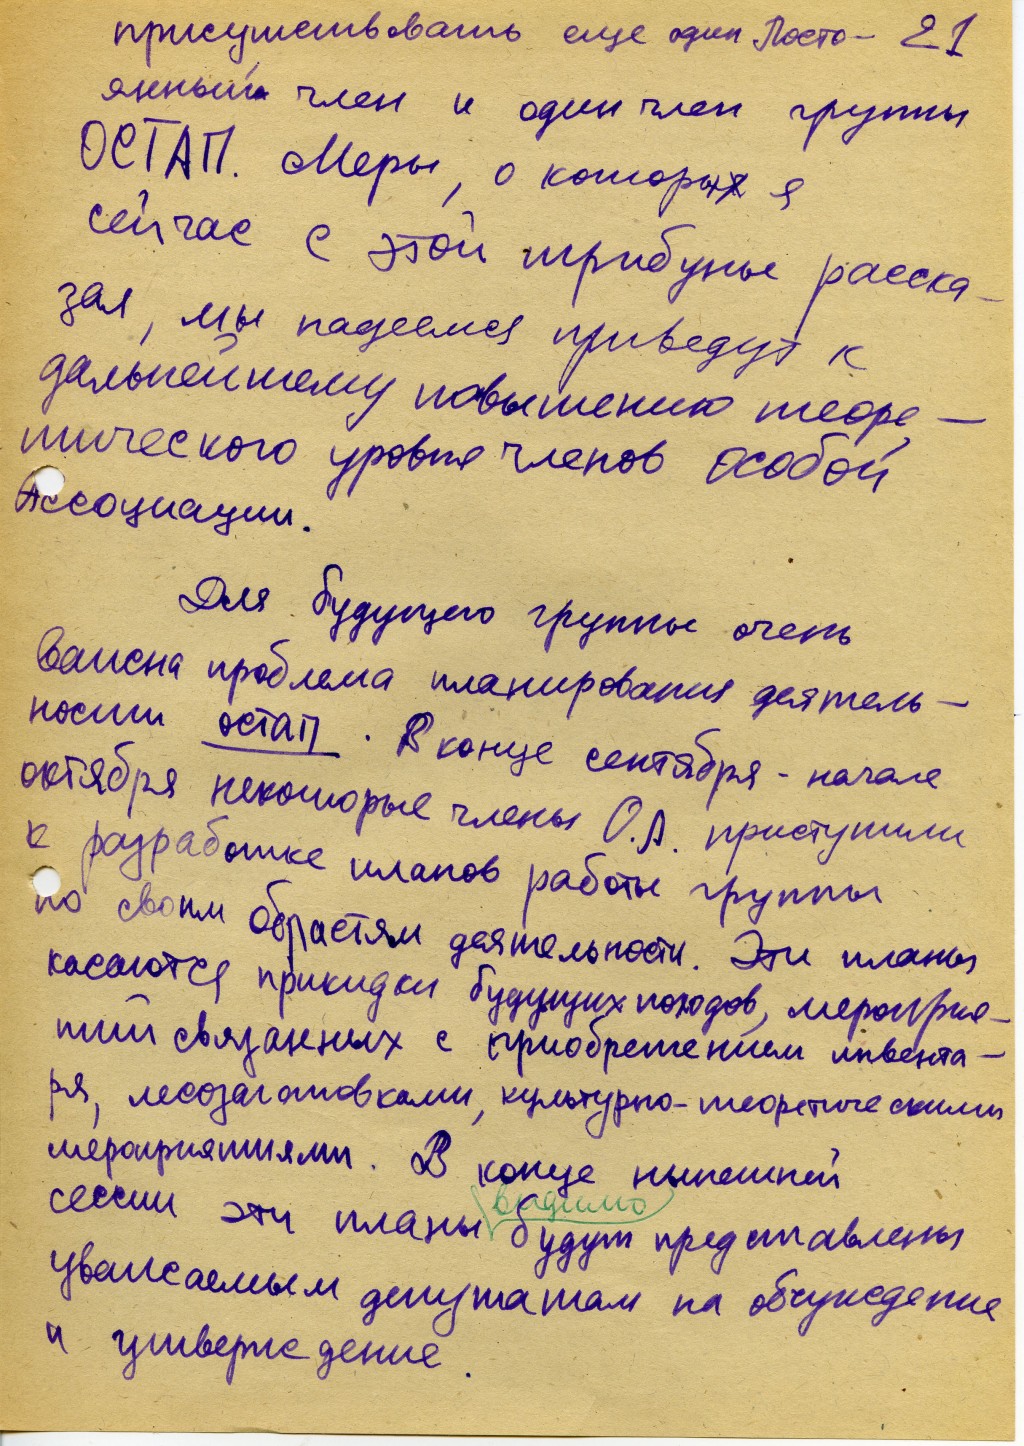 присутствовать еще один Посто- 21
янный член и один член группы
ОСТАП. Меры, о которых я
сейчас с этой трибуны расска-
зал, мы надеемся приведут к
дальнейшему повышению теоре-
тического уровня членов особой
Ассоциации.
Для будущего группы очень
важна проблема планирования деятель-
ности ОСТАП. В конце сентября - начале
октября некоторые члены О.А. приступили
к разработке планов работы группы
по своим областям деятельности. Эти планы
касаются прикидки будущих походов, мероприя-
тий связанных с приобретением инвента-
ря, лесозаготовками, культурно-теоретическими
мероприятиями. В конце нынешней
видимо
сессии эти планы будут представлены
уважаемым депутатам на обсуждение
и утверждение.